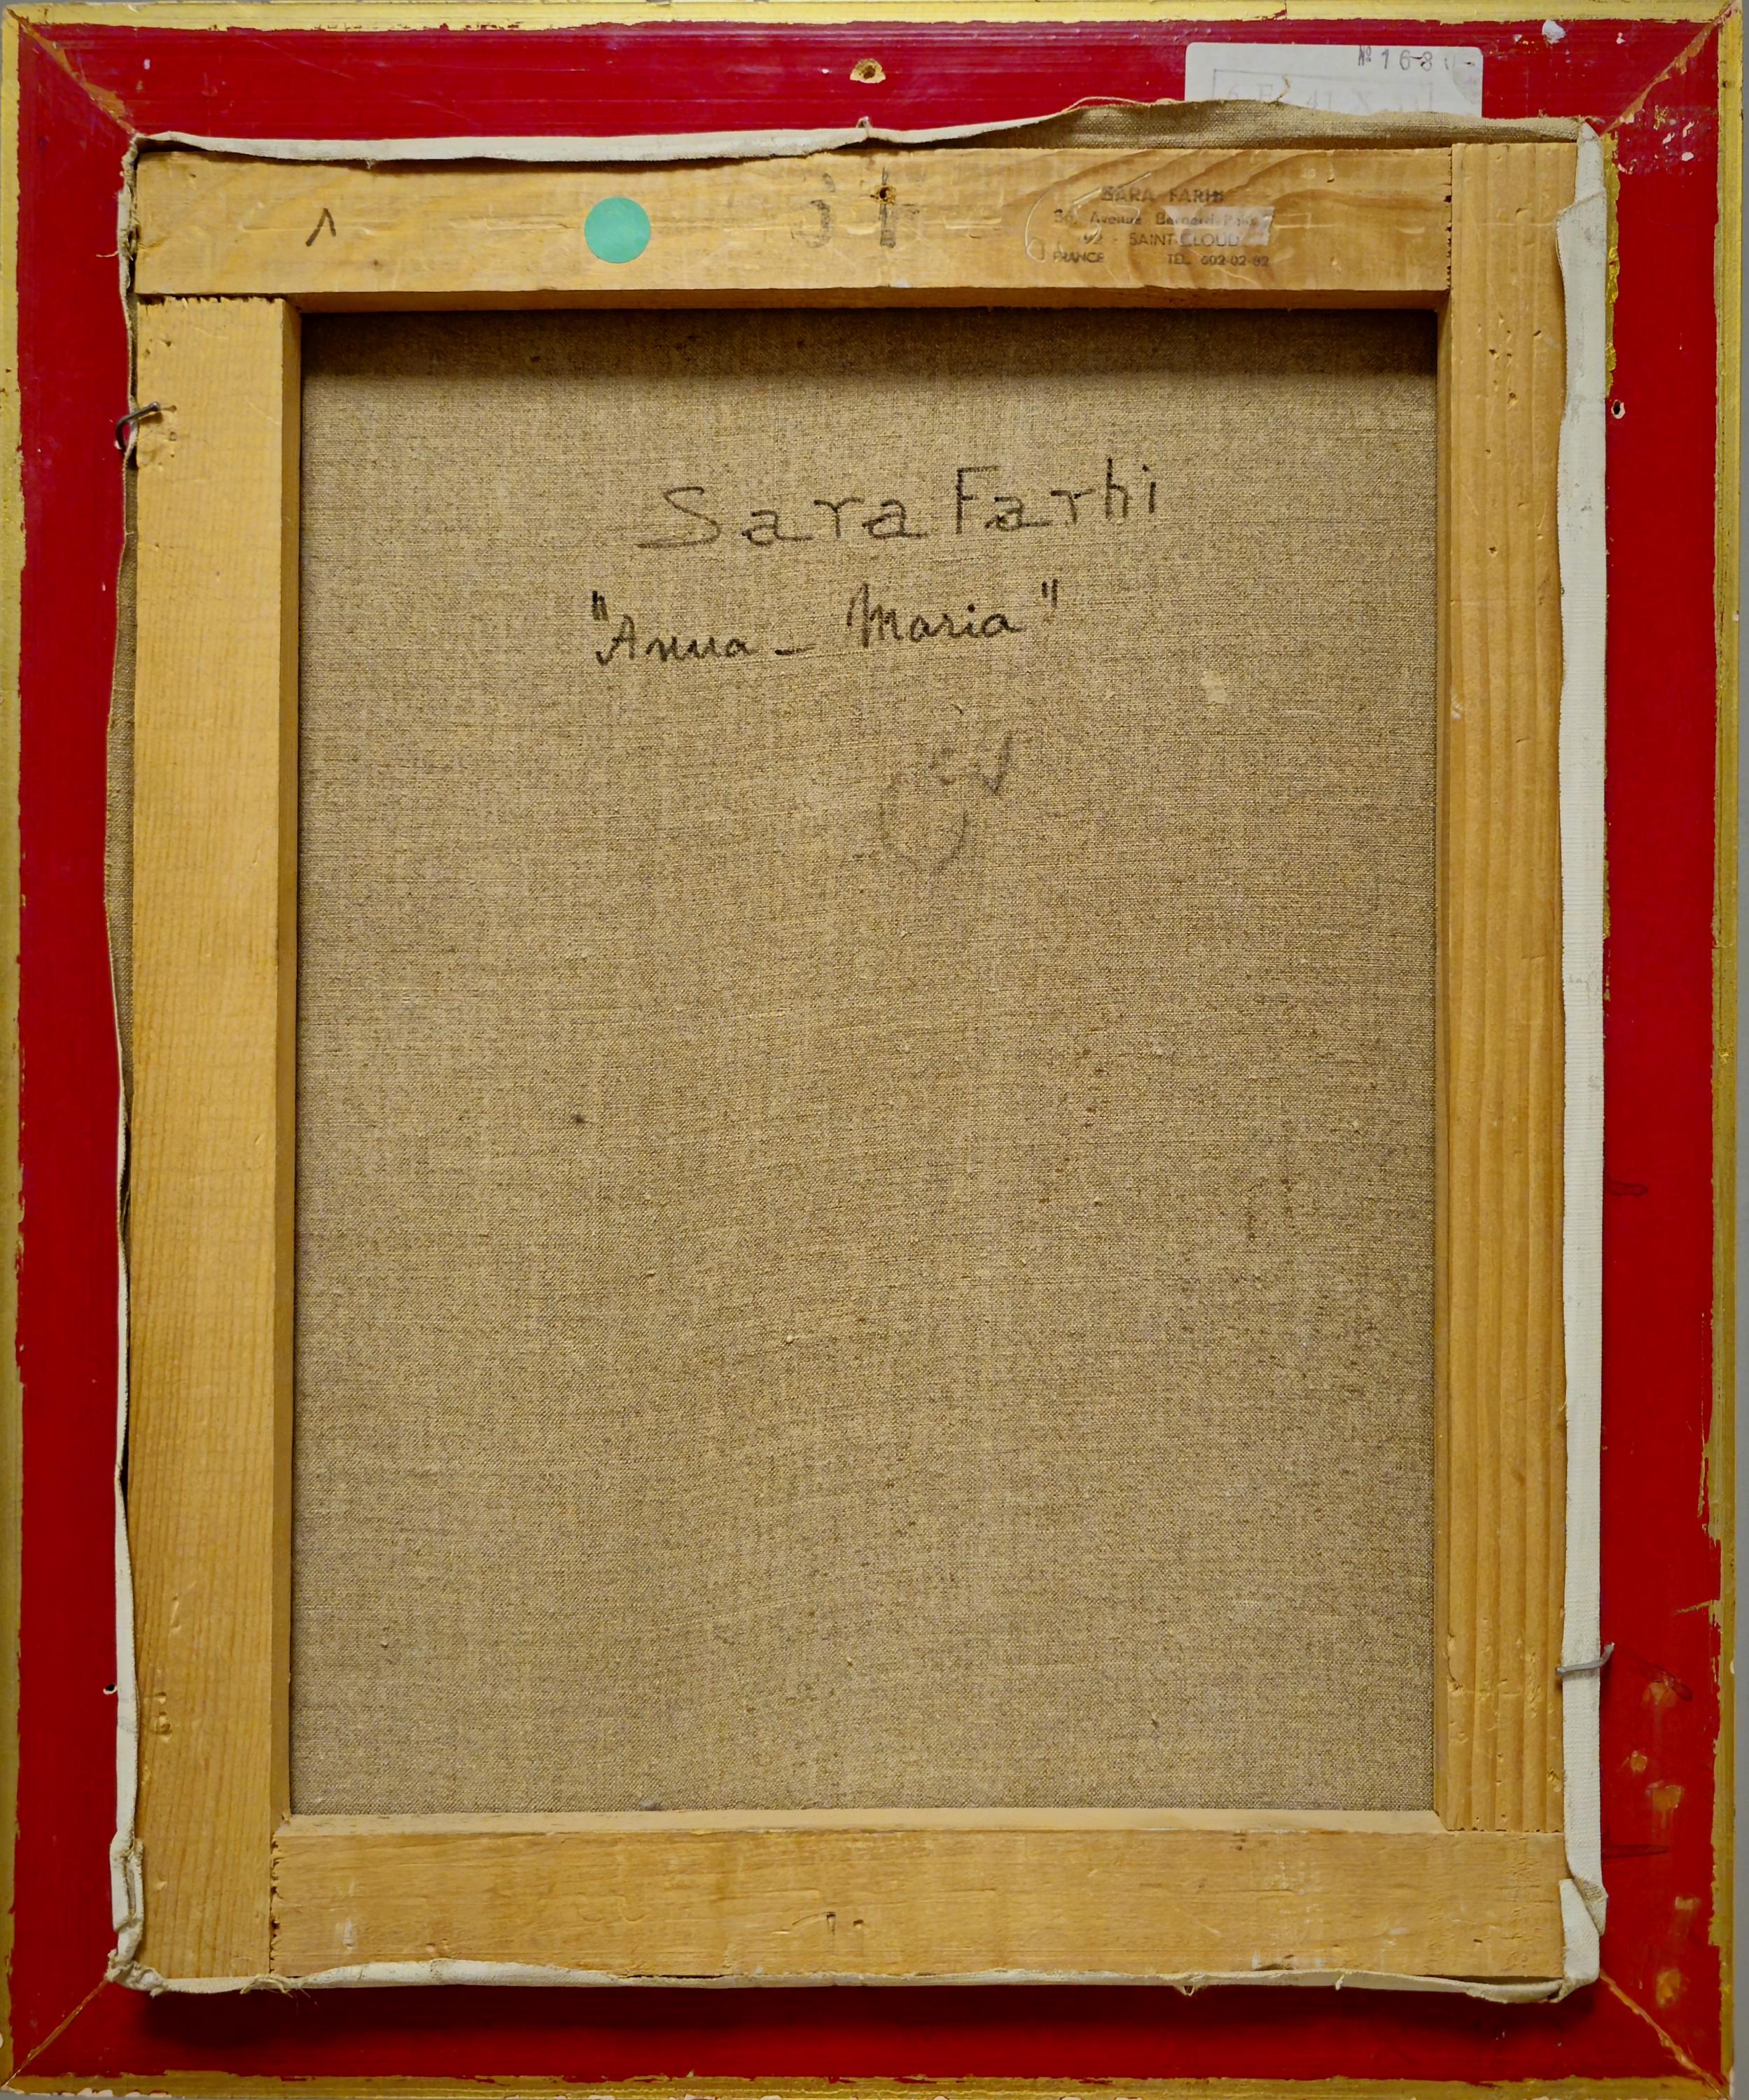 Nº 168
SARA FARHI
36, Avenue Bernard
92 - SAINT-CLOUD
FRANCE TÉL. 602-02-82
Sara Farhi
"Anna - Maria"